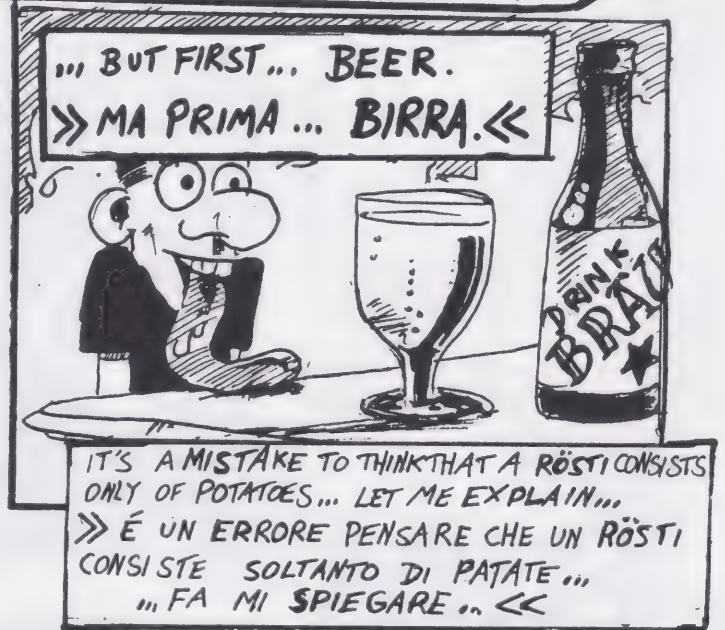 ... BUT FIRST... BEER.
>> MA PRIMA ... BIRRA.<<
DRINK
BRÄU
IT'S A MISTAKE TO THINK THAT A RÖSTI CONSISTS
ONLY OF POTATOES... LET ME EXPLAIN...
>> É UN ERRORE PENSARE CHE UN RÖSTI
CONSISTE SOLTANTO DI PATATE...
... FA MI SPIEGARE... <<